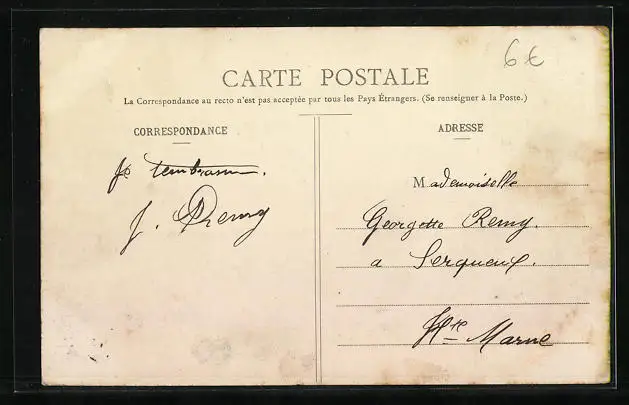 6€
CARTE POSTALE
La Correspondance au recto n'est pas acceptée par tous les Pays Étrangers. (Se renseigner à la Poste.)
CORRESPONDANCE
ADRESSE
Je t'embrasse.
J. Remy
Mademoiselle
Georgette Remy.
a Serqueux.
Hte Marne